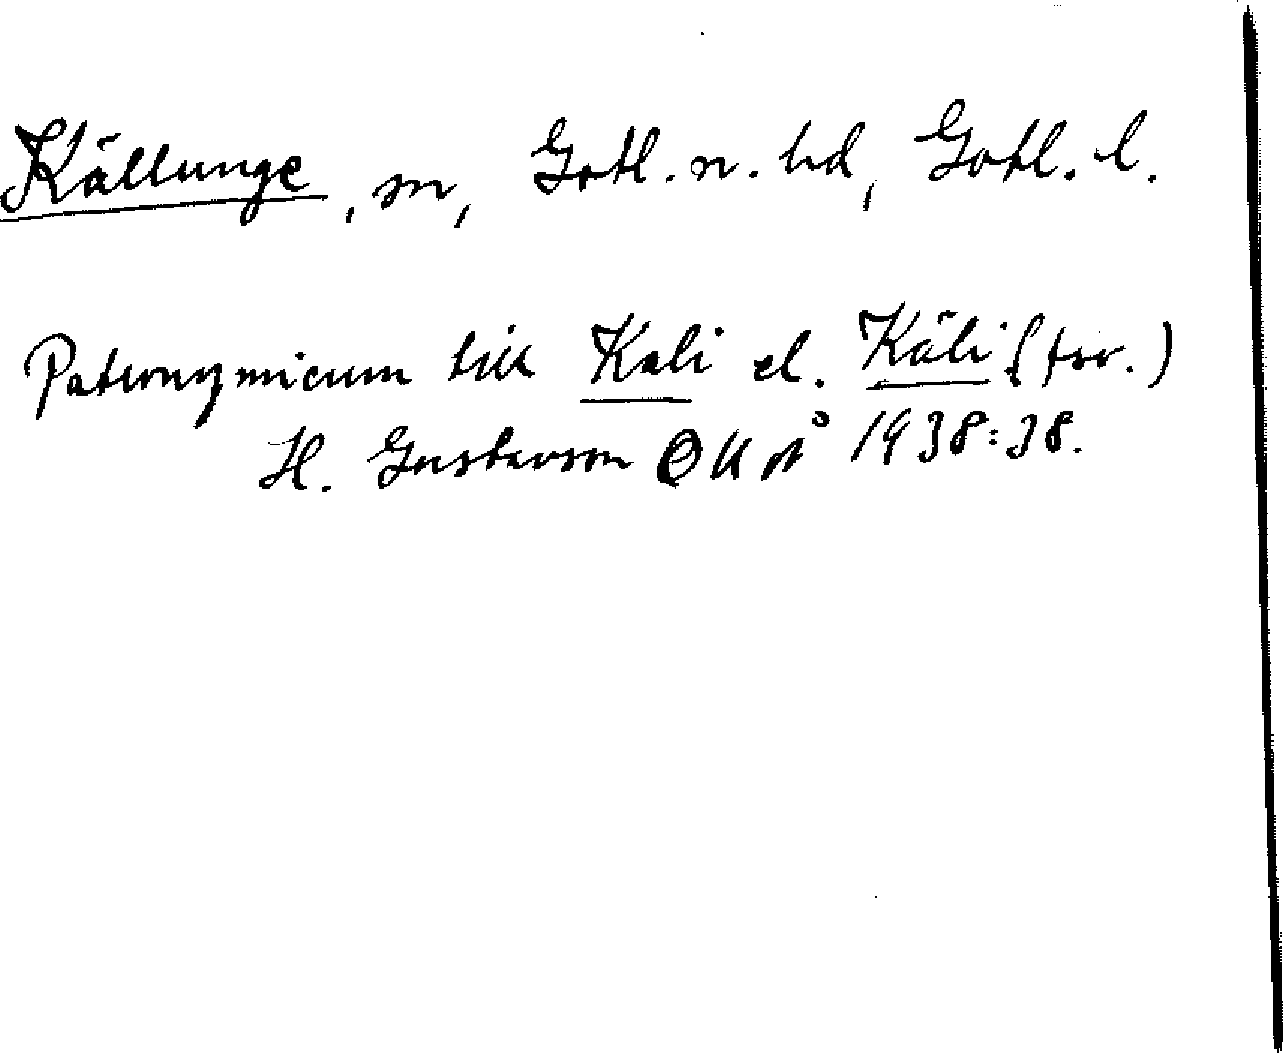 Källunge, sn, Gotl. n. hd, Gotl. l.
Patronymicum till Kali el. Käli (fsv.)
H. Gustavson OUÅ 1938:38.